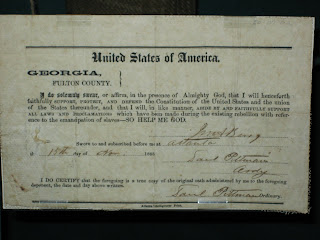 United States of America.
GEORGIA,
FULTON COUNTY.
I do solemnly swear, or affirm, in the presence of Almighty God, that I will henceforth
faithfully SUPPORT, PROTECT, AND DEFEND the Constitution of the United States and the union
of the States thereunder, and that I will, in like manner, ABIDE BY AND FAITHFULLY SUPPORT
ALL LAWS AND PROCLAMATIONS which have been made during the existing rebellion with refer-
ence to the emancipation of slaves—SO HELP ME GOD.
Sworn to and subscribed before me at
Atlanta
day of
Saml Pittman
Ordy
I DO CERTIFY that the foregoing is a true copy of the original oath administered by me to the foregoing
deponent, the date and day above written.
Saml Pittman Ordinary